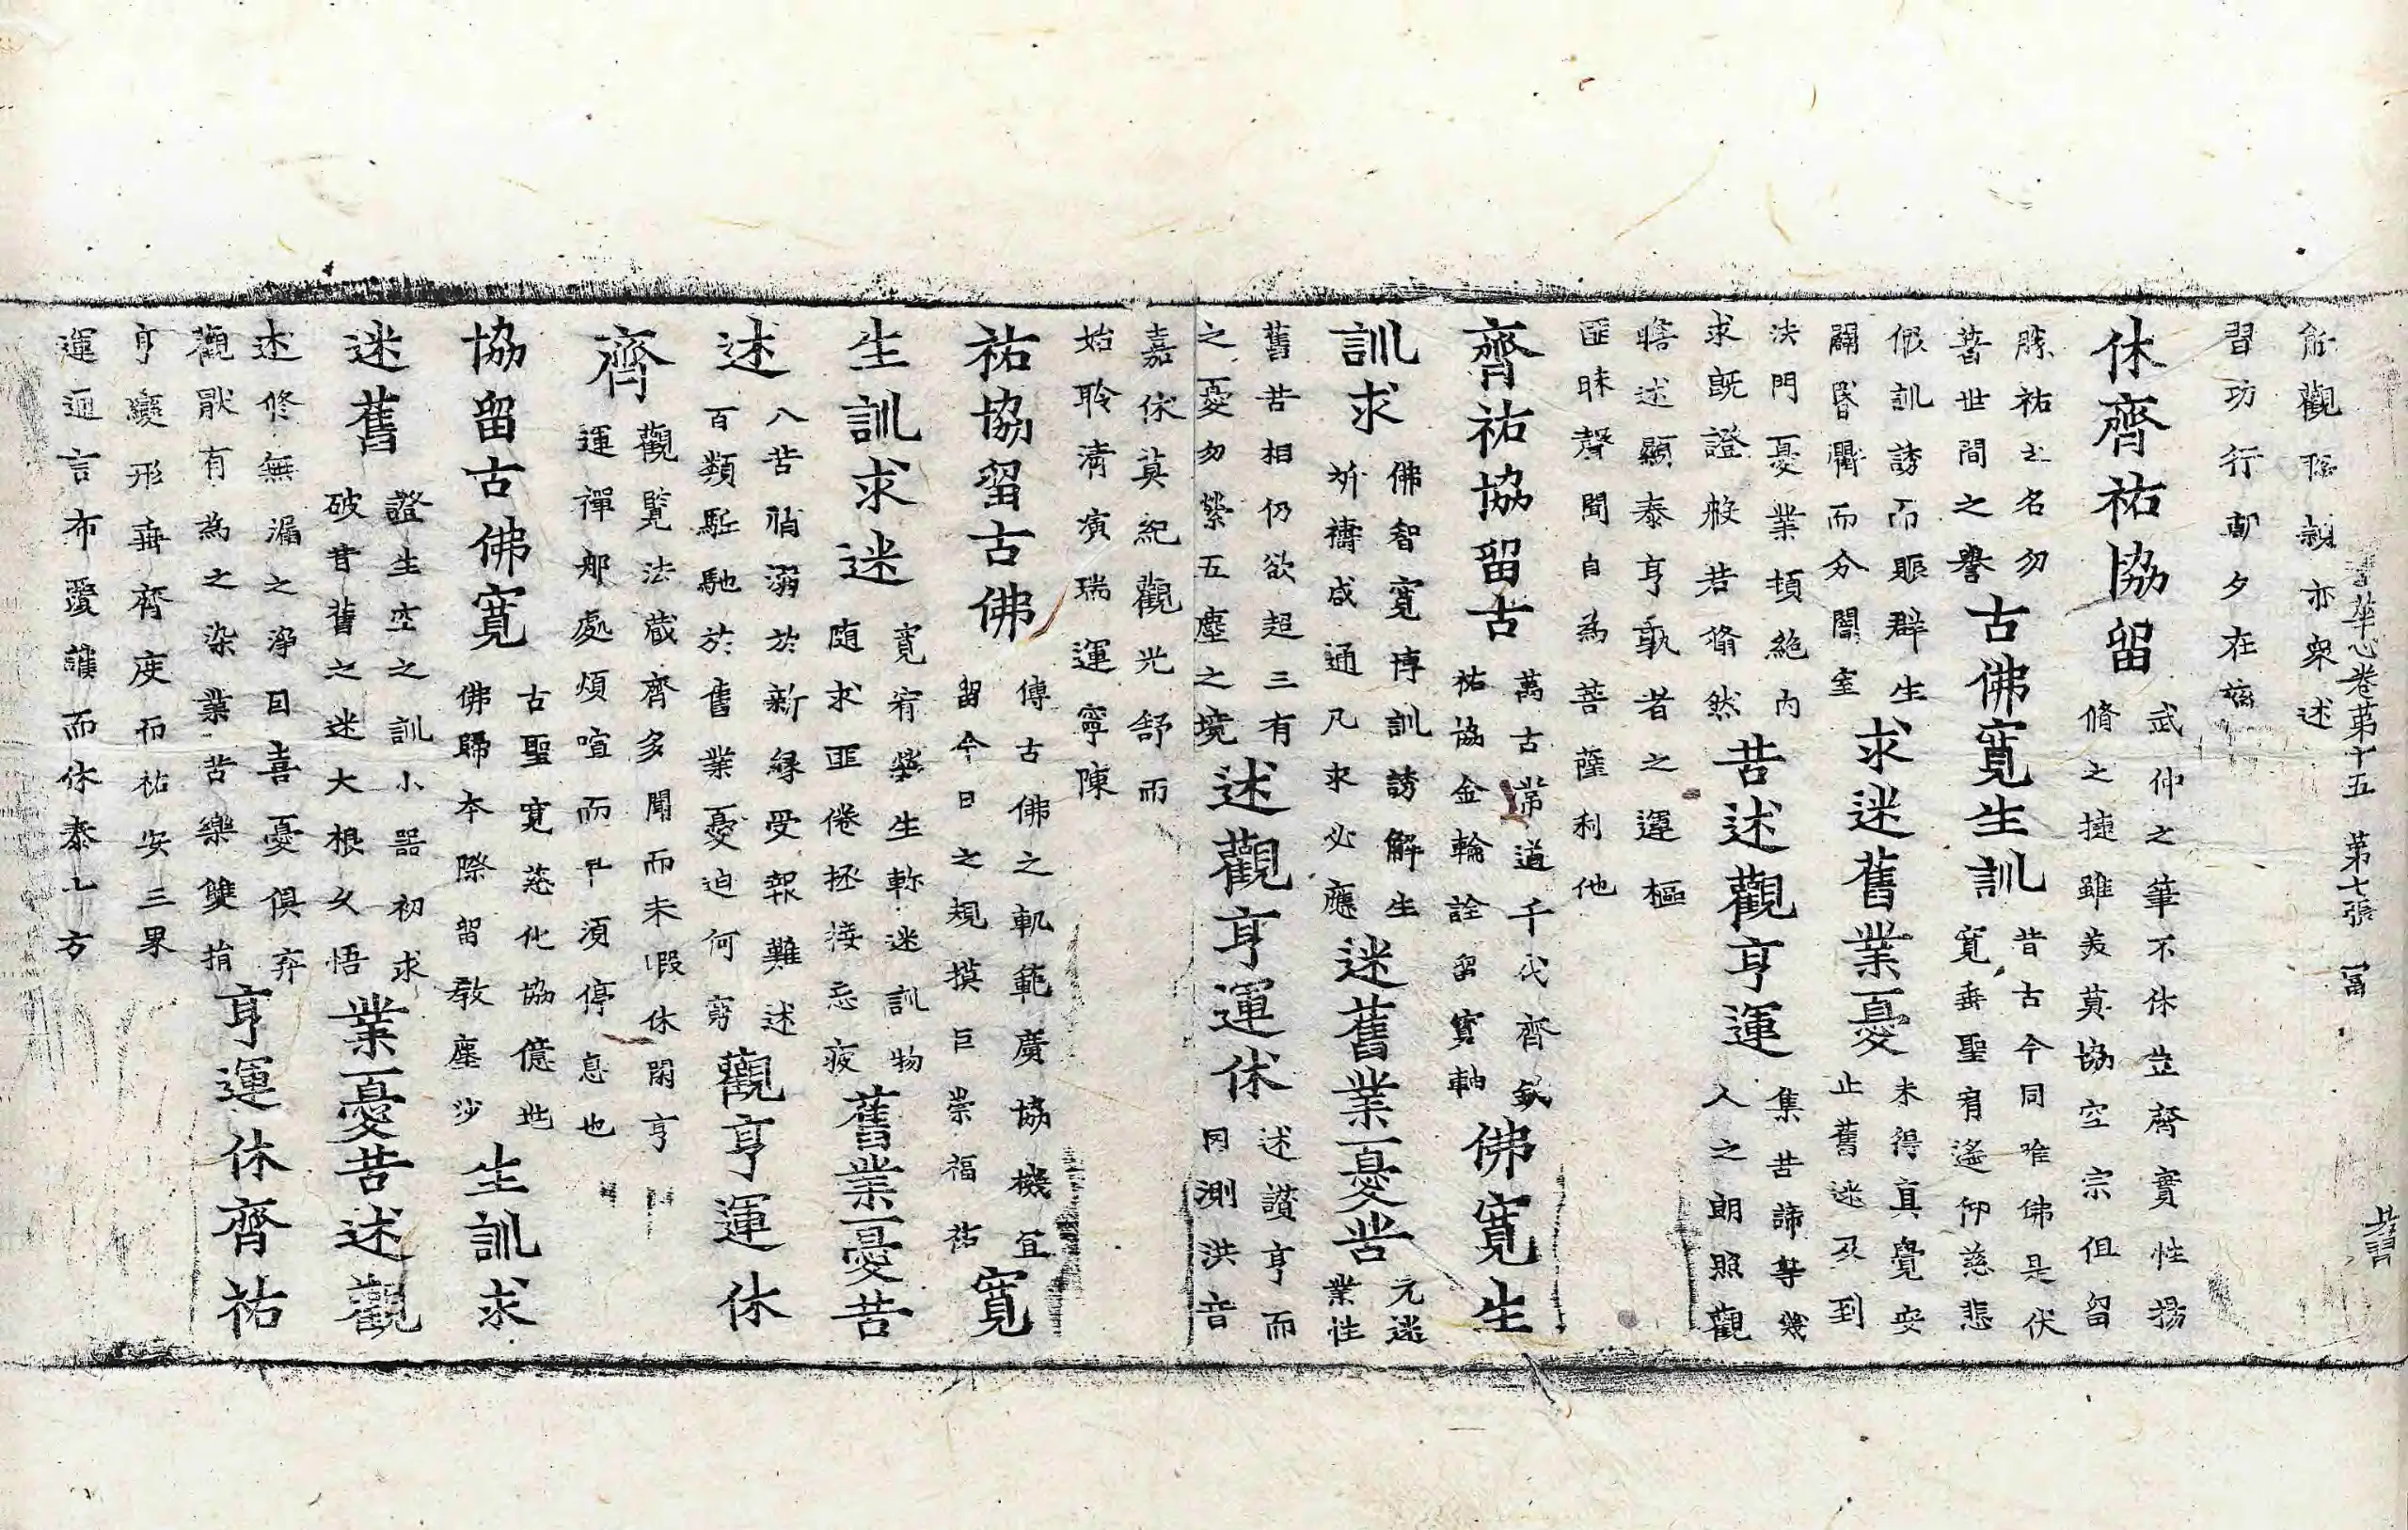 華心卷第十五 第七張 冨
能觀親亦衆述
習功行朝夕在
休齊祐協留
武仲之筆不休竝齊實性揚
脩之揵雖羨莫協空宗但留
勝祐之名勿
著世間之譽
古佛寬生訓
昔古今同唯佛是伏
寬垂聖宥遙仰慈悲
假訓誘而賑群生
闢昏衢而分闇室
求迷舊業憂
未得真覺妄
止舊迷及到
法門憂業頓絕內
求既證般若脩然
苦述觀亨運
集苦諦等幾
入之朗照觀
瞎述顯泰亨孰者之運樞
匪昧聲聞自為菩薩利他
齊祐協留古
萬古常道千代齊欽
祐協金輪詮留寶軸
佛寬生
訓求
佛智寬博訓誘解生
祈禱咸通凡求必應
迷舊業憂苦
元迷
業性
舊苦相仍欲超三有
之憂勿縈五塵之境
述觀亨運休
述讚亨而
罔測洪音
嘉休莫紀觀光舒而
始聆清演瑞運寧陳
祐協留古佛
傳古佛之軌範廣協機宜
留今日之規摸巨崇福祐
寬
生訓求迷
寬宥營生軫迷訓物
隨求匪倦拯接忘疲
舊業憂苦
述
八苦消溺於新緣受報難述
百類駈馳於舊業憂迫何窮
觀亨運休
齊
觀覽法藏齊多聞而未假休閑亨
運禪那處煩喧而不須停息也
協留古佛寬
古聖寬慈化協億世
佛歸本際留教塵沙
生訓求
迷舊
證生空之訓小器初求
破昔舊之迷大根久悟
業憂苦述觀
述修無漏之淨因喜憂俱弃
觀猒有為之染業苦樂雙捐
亨運休齊祐
亨變形垂齊度而祐安三果
運迊言布愛護而休泰十方